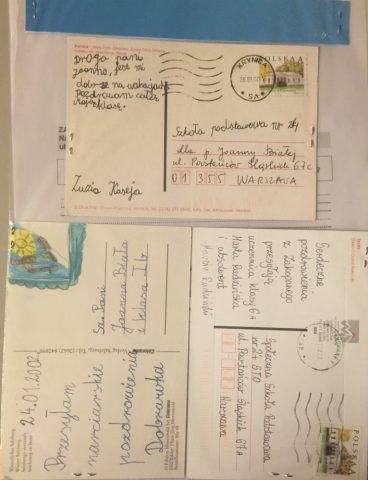 Droga pani
Joanno, jest mi
dobrze na wakacjach.
Pozdrawiam całą
klasę.
Zuzia Kaseja
KRYNICA
POLSKA
Szkoła podstawowa nr 24
dla p. Joanny Białej
ul. Powstańców Śląskich 67c
01 355 WARSZAWA
Sz. Pani
Joanna Biała
z klasą I b
24.01.2002
Przesyłam
narciarskie
pozdrowienia
Dobrawka
Serdeczne
pozdrowienia
z Zakopanego
przesyłają
uczennica klasy 6A
Marta Rudzińska
i absolwent
POLSKA
Społeczna Szkoła Podstawowa
nr 24 STO
ul. Powstańców Śląskich 67A
Warszawa